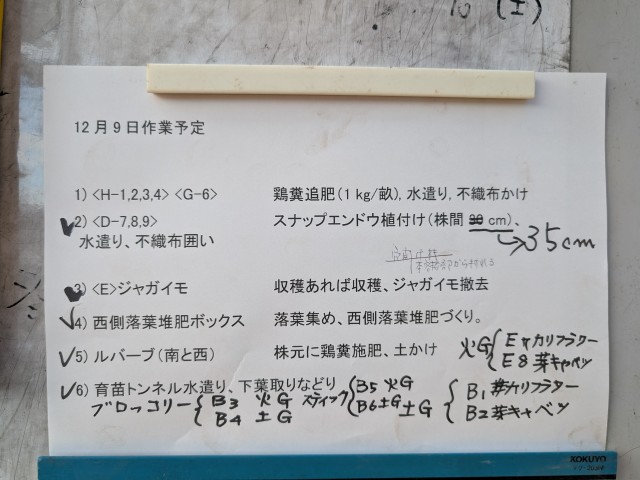 (土)
12月9日作業予定
1) <H-1,2,3,4> <G-6> 鶏糞追肥(1kg/畝), 水遣り, 不織布かけ
2) <D-7,8,9> スナップエンドウ植付け(株間 30 cm)、
水遣り、不織布囲い
35cm
3) <E>ジャガイモ 収穫あれば収穫、ジャガイモ撤去
4) 西側落葉堆肥ボックス 落葉集め、西側落葉堆肥づくり。
5) ルバーブ(南と西) 株元に鶏糞施肥、土かけ
火G { E7カリフラワー
E8芽キャベツ
6) 育苗トンネル水遣り、下葉取りなどり
ブロッコリー { B3 火G
B4 土G
スティック { B5 火G
B6土G
土G { B1カリフラワー
B2芽キャベツ
KOKUYO